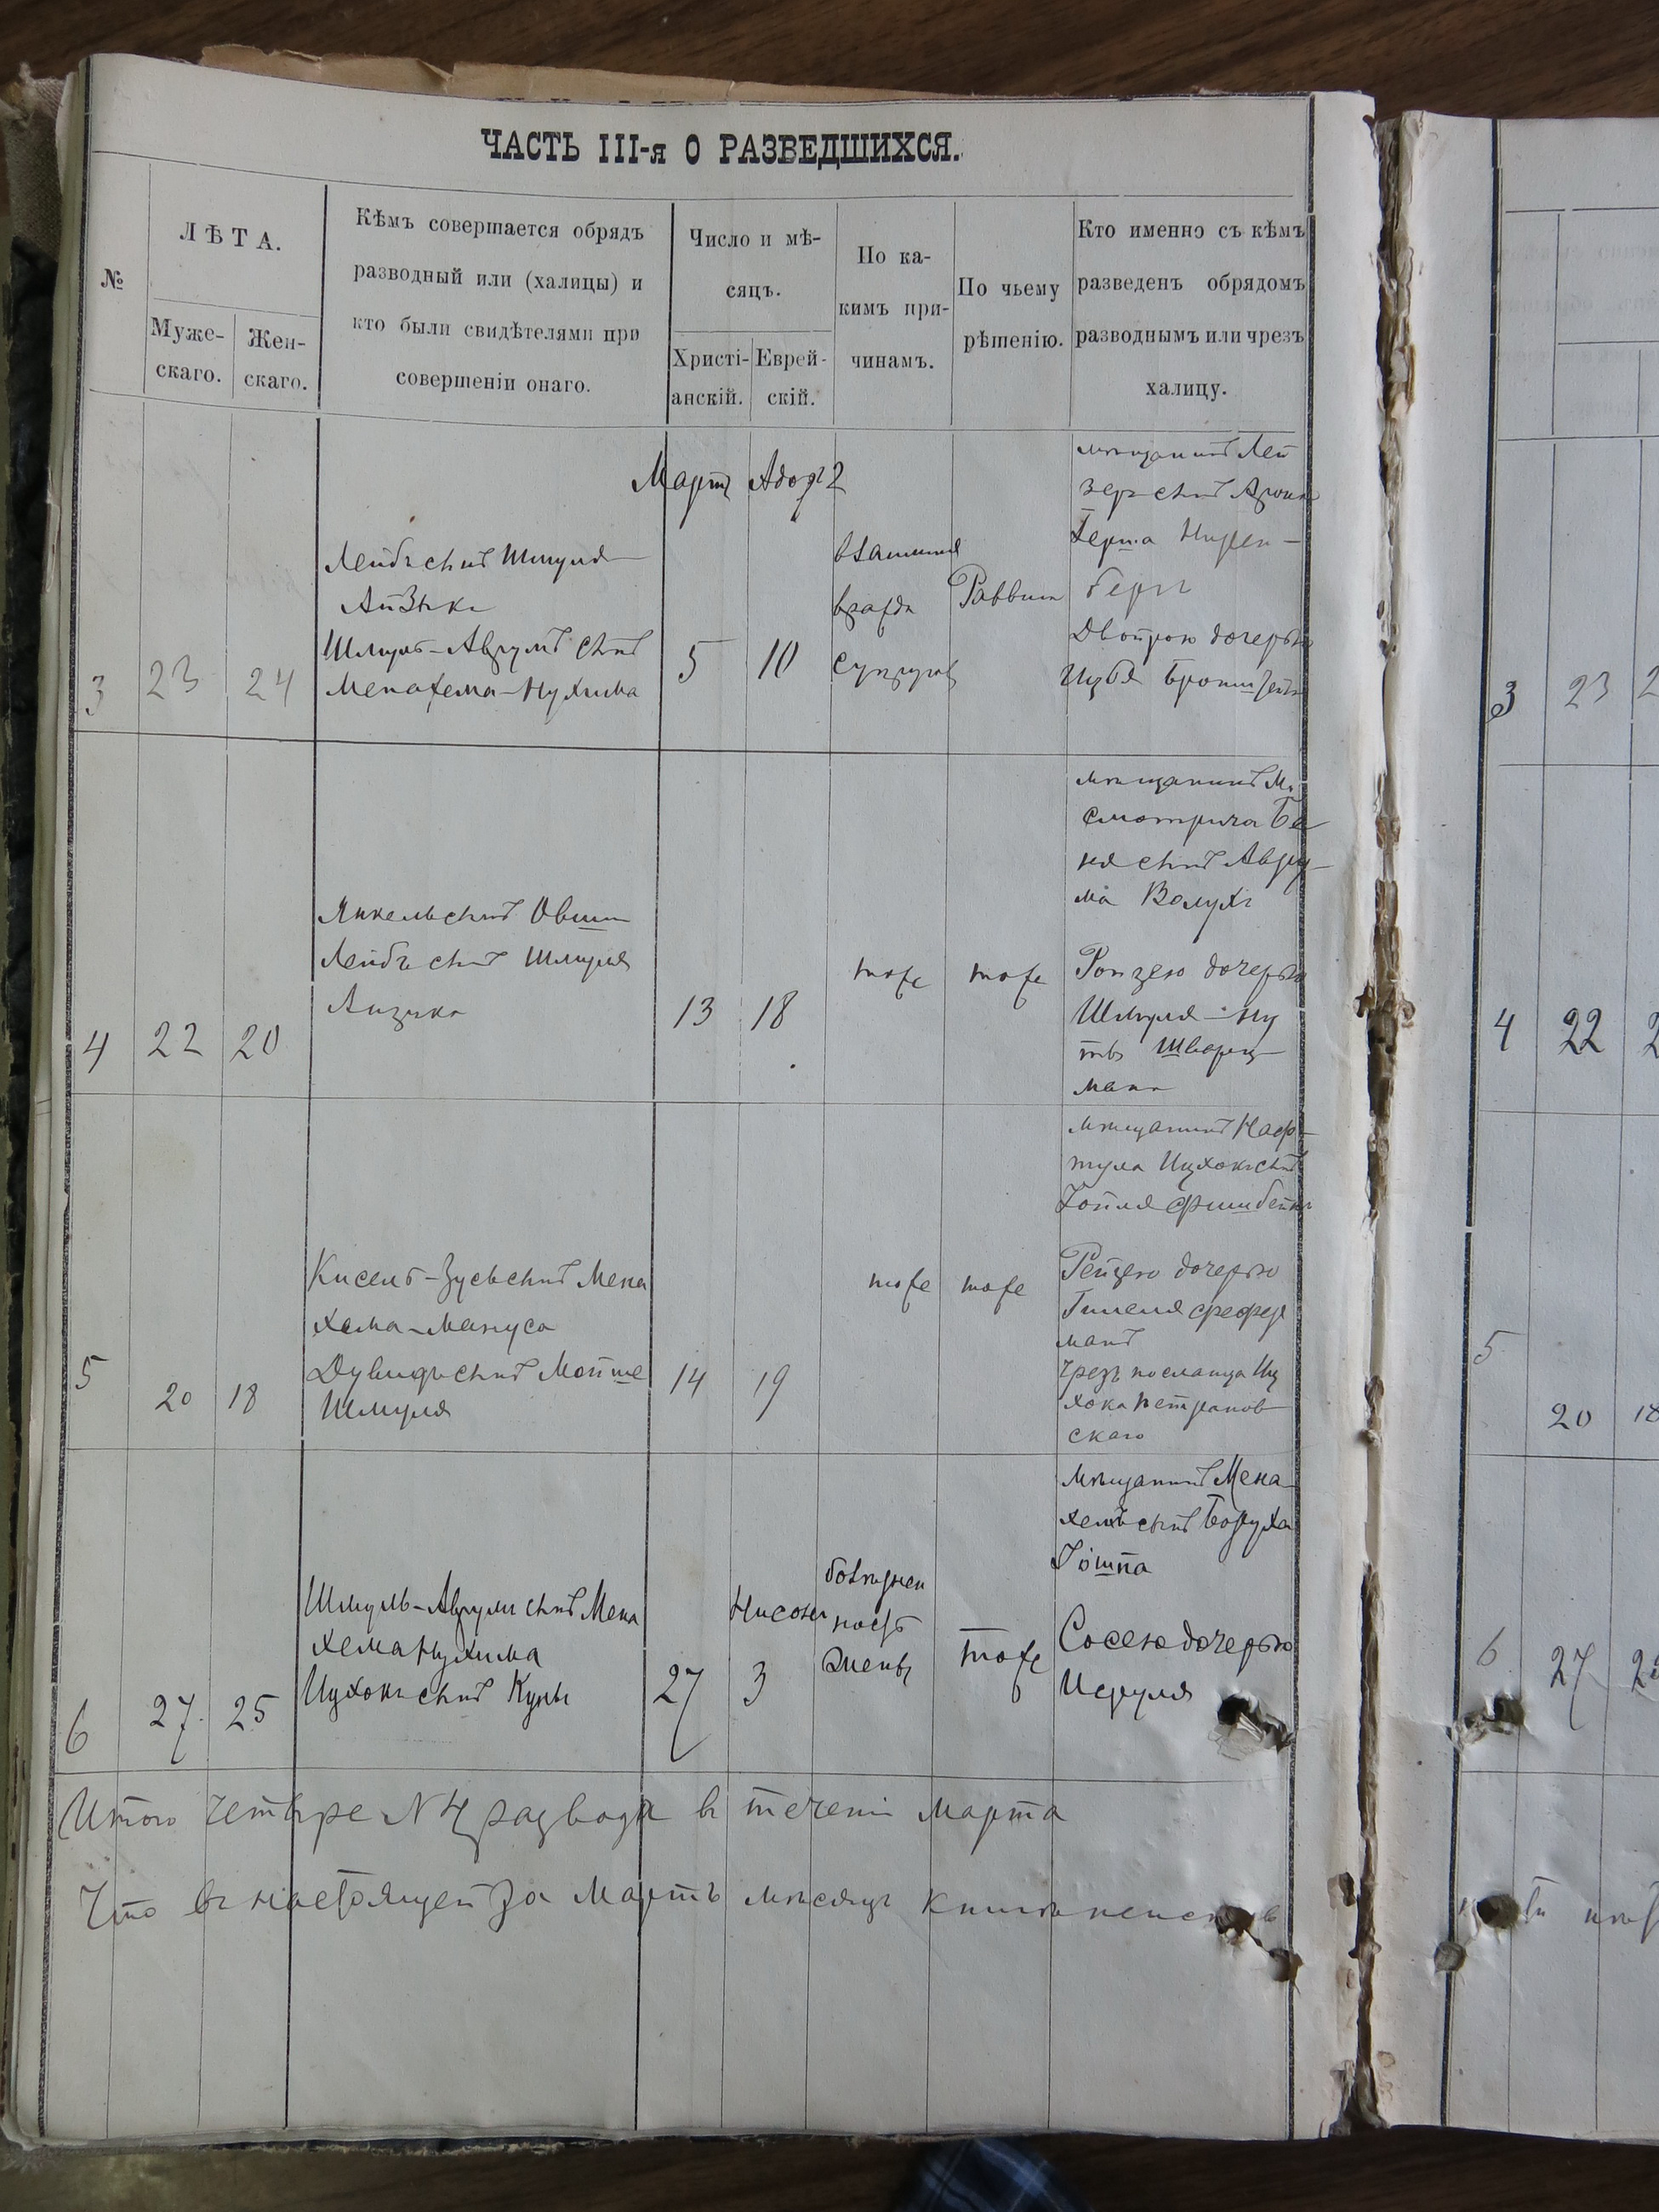 ЧАСТЬ III-я О РАЗВЕДШИХСЯ.
№
ЛѢТА.
Муже-
скаго.
Жен-
скаго.
Кѣмъ совершается обрядъ
разводный или (халицы) и
кто были свидѣтелями при
совершеніи онаго.
Число и мѣ-
сяцъ.
Христі-
анскій.
Еврей-
скій.
По ка-
кимъ при-
чинамъ.
По чьему
рѣшенію.
Кто именно съ кѣмъ
разведенъ обрядомъ
разводнымъ или чрезъ
халицу.
Мартъ Адоръ 2
3
23
24
Лейбъ сынъ Шмуля
Айзыка
Шмуль-Аврумъ сынъ
Менахема-Нухима
5
10
взаимная
вражда
супруговъ
Раввин
мѣщанинъ Лей
зеръ сынъ Арона
Герша Ниренберг
Двойрою дочерью
4
22
20
Янкель сынъ Овши
Лейбъ сынъ Шмуля
Айзика
13
18
тоже
тоже
мѣщанинъ М.
Смотрича Бе
ня сынъ Авру
ма Волухъ
дочерью
Шмуля-Ну
ты Шварц
мана
5
20
18
Кисель-Зусь сынъ Мена
хема-Мануса
Дувидъ сынъ Мойше
Шмуля
14
19
тоже
тоже
мѣщанинъ Наф
тула Ицхокъ сынъ
Рейзею дочерью
чрезъ посланца Иц
хока Петранов
скаго
6
27
25
Шмуль-Аврумъ сынъ Мена
хема Нухима
Ицхокъ сынъ Куны
27
Нисонъ
3
болѣзнен
ность
жены
тоже
Мѣщанинъ Мена
хемъ сынъ Боруха
Сосею дочерью
Исруля
Итого четыре № 4 развода въ теченіи Марта
Что въ настоящей за Мартъ мѣсяцъ книгѣ
3
23
2
4
22
2
5
20
18
6
27
2